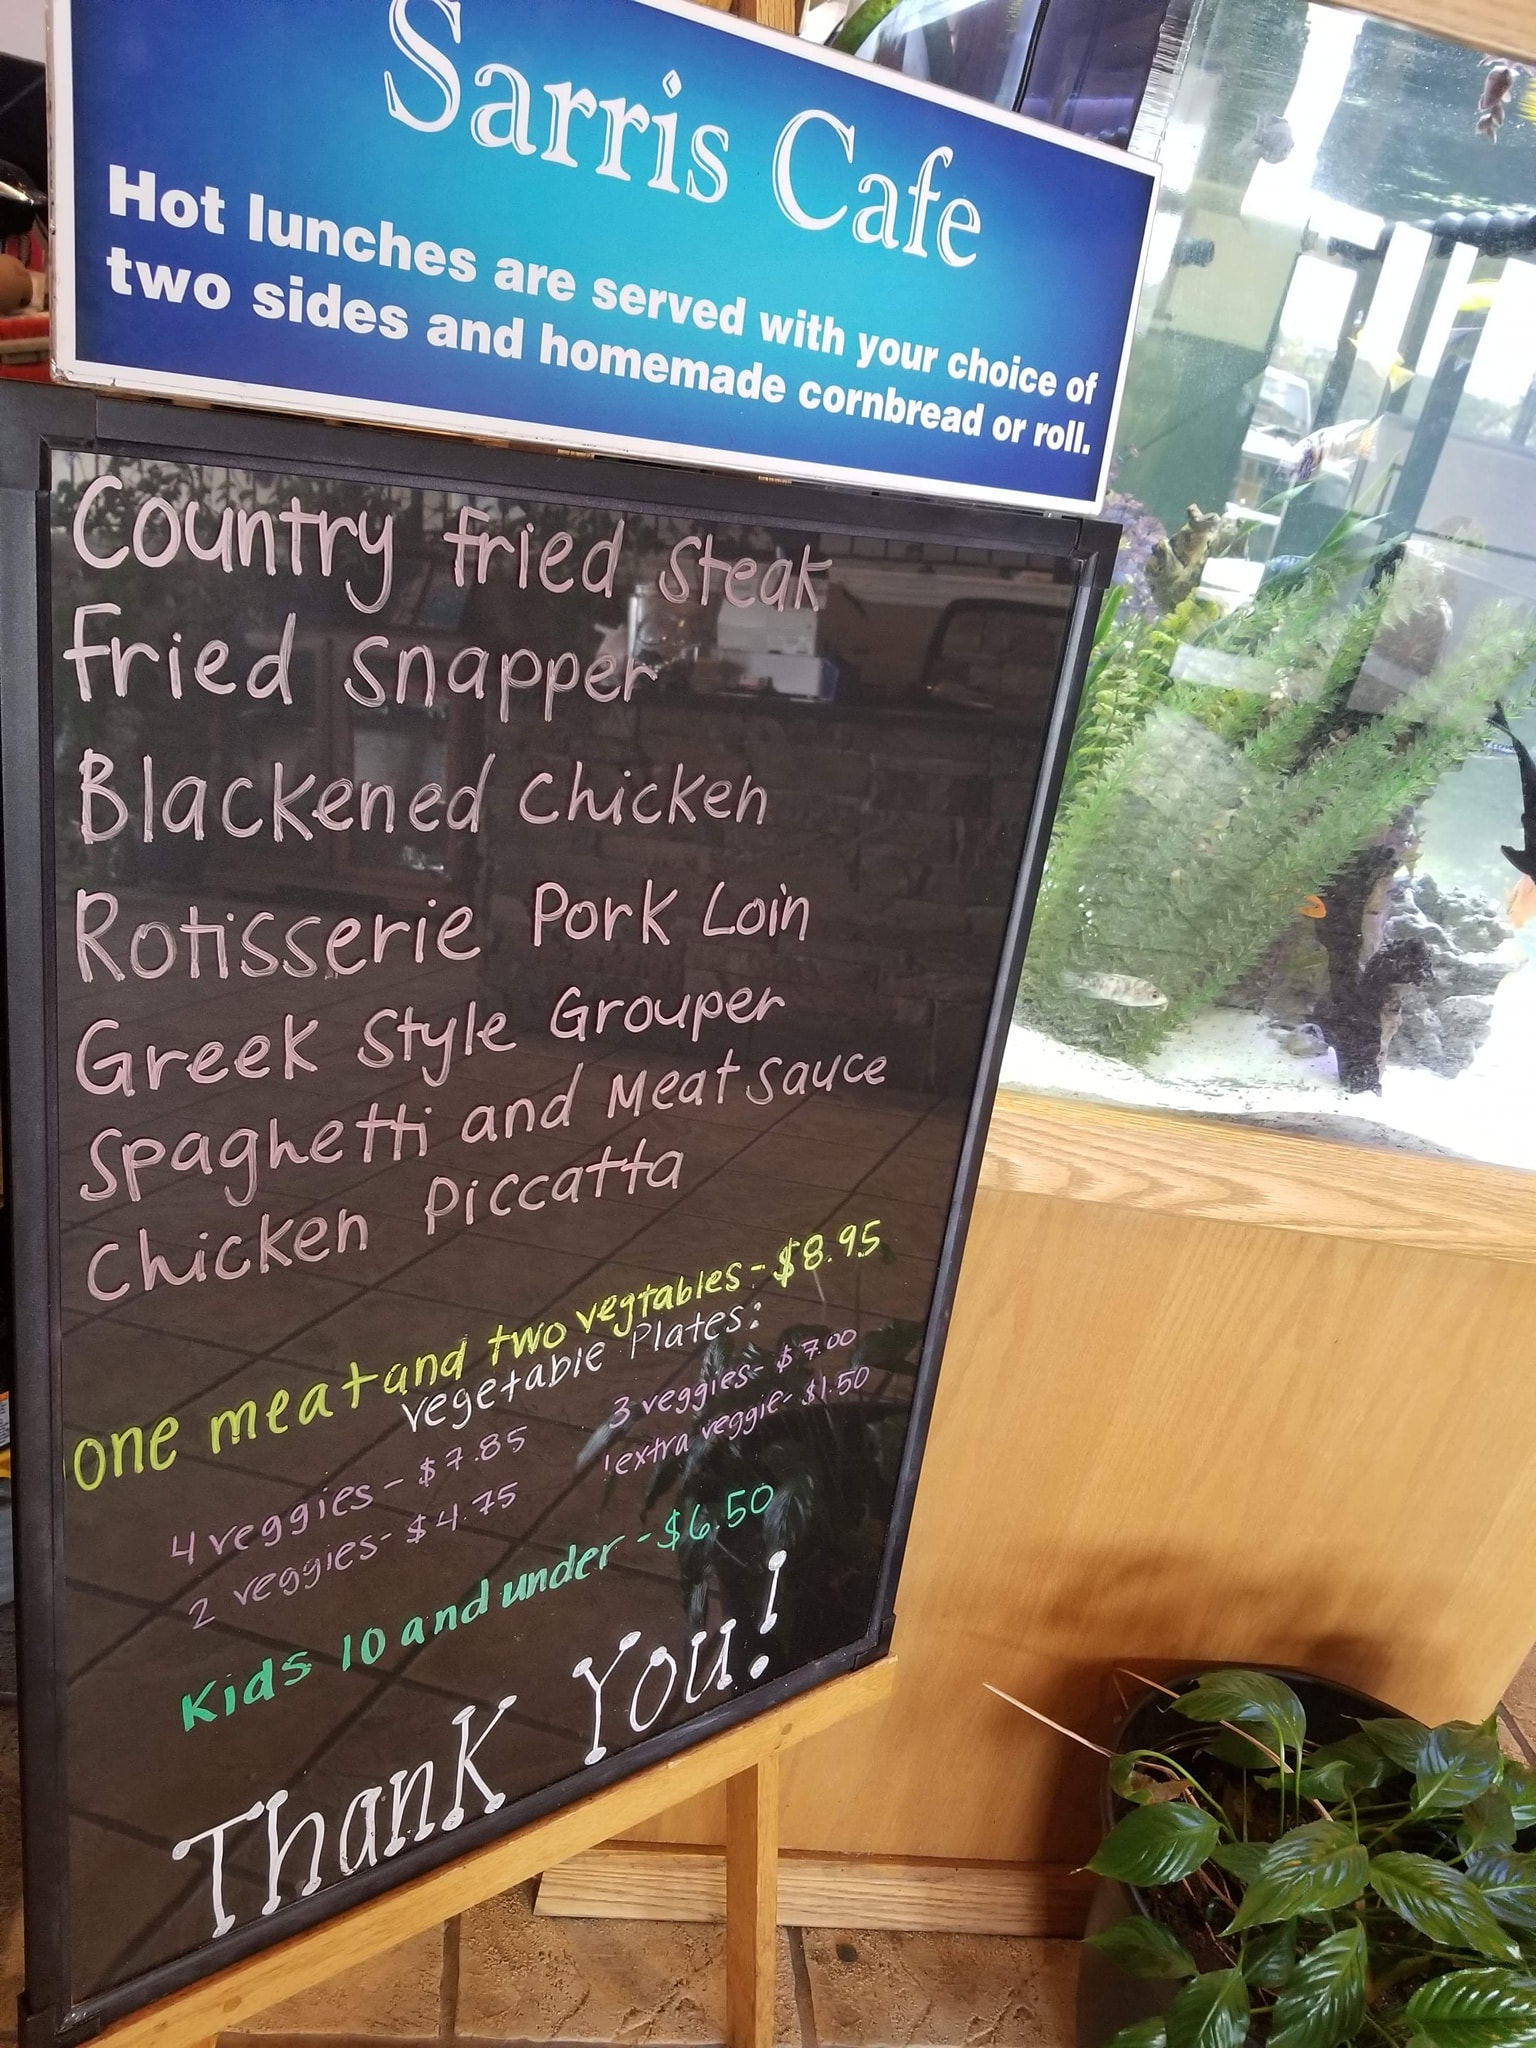 Sarris Cafe
Hot lunches are served with your choice of
two sides and homemade cornbread or roll.
Country fried Steak
fried Snapper
Blackened Chicken
Rotisserie Pork Loin
Greek Style Grouper
Spaghetti and Meat Sauce
Chicken Piccatta
one meat and two vegtables - $8.95
vegetable Plates:
4 veggies - $7.85
3 veggies - $7.00
2 veggies - $4.75
1 extra veggie - $1.50
Kids 10 and under - $6.50
Thank You!